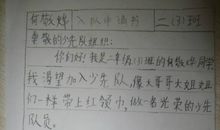 有敬烨 入队申请书 二(3)班
尊敬的少先队组织:
你们好!我是二年级(3)班的有敬烨同学
我渴望加入少先队,像大哥哥大姐姐
们一样带上红领巾,做一名光荣的少先
队员。